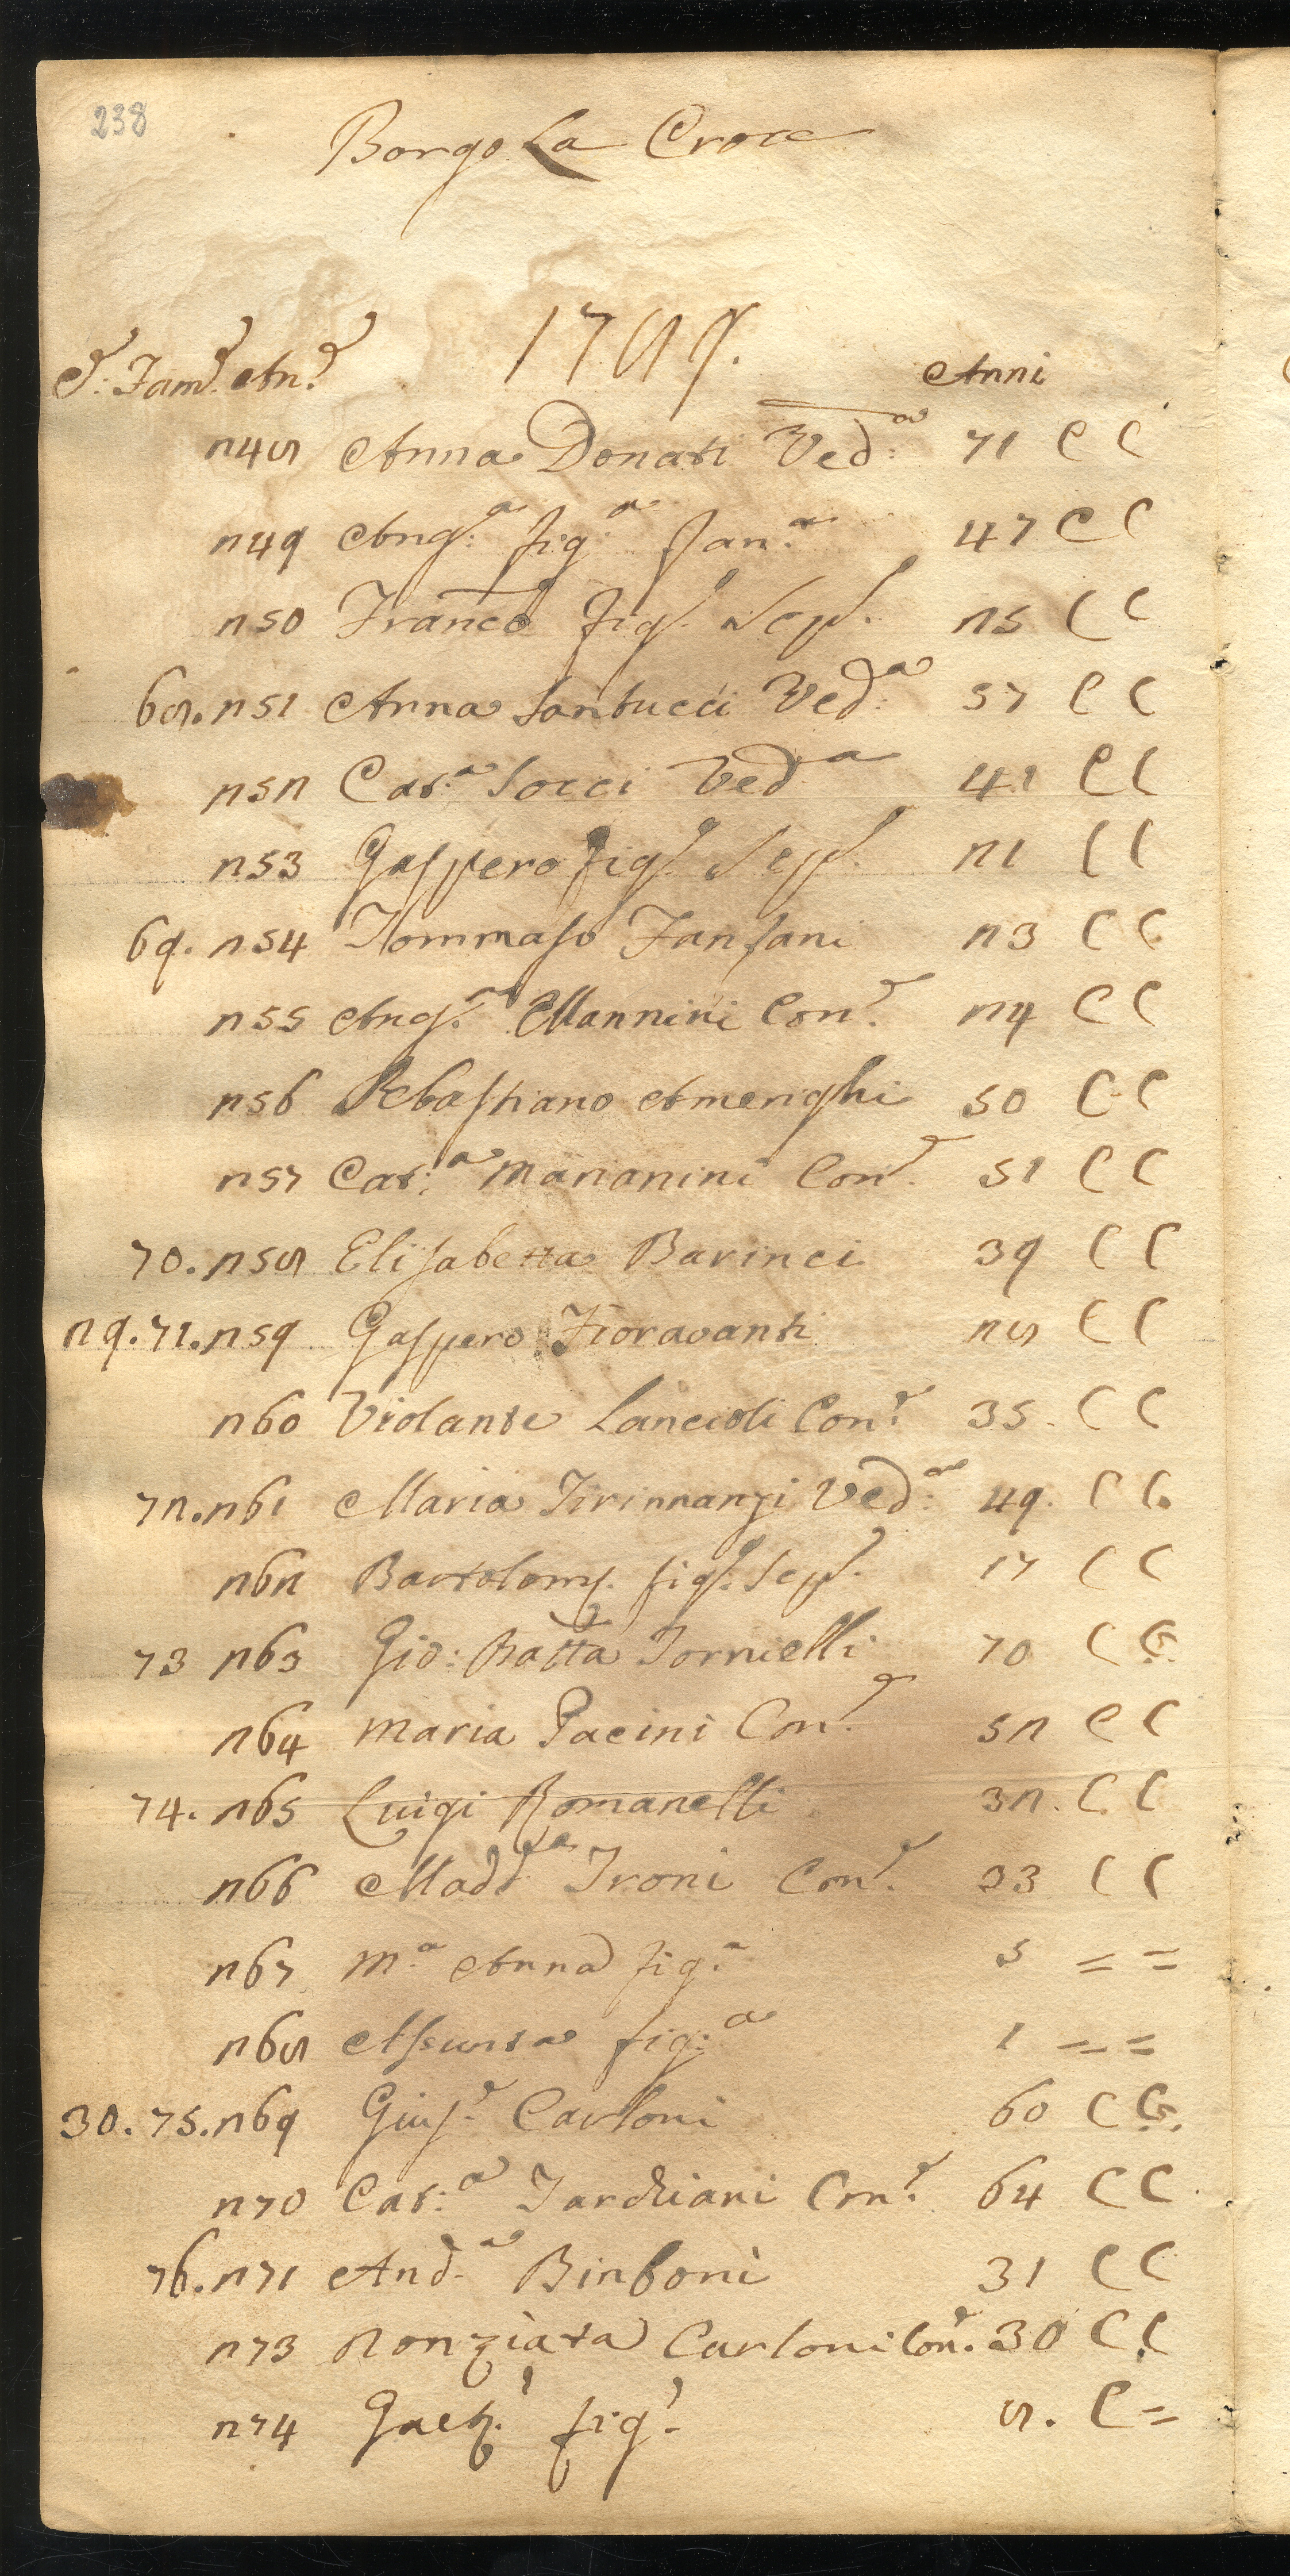 238
Borgo La Croce
1789.
C: Fam.e An.e Anni
248 Anna Donati Ved:a 71 C C
249 Ang:a fig:a Fan:a 47 C C
250 Franc.o fig.o Sep.o 25 C C
68. 251 Anna Santucci Ved:a 57 C C
252 Cat:a Socci Ved.a 41 C C
253 Gaspero fig.o Sep.o 21 C C
69. 254 Tommaso Fansani 23 C C
255 Ang.a Mannini Con.e 24 C C
256 Sebastiano Amerighi 50 C C
257 Cat:a Marianini Con.e 51 C C
70. 258 Elisabetta Barinci 39 C C
29. 71. 259 Gaspero Fioravanti 28 C C
260 Violante Lancioli Con.e 35. C C
72. 261 Maria Tirinnanzi Ved:a 49. C C.
262 Bartolom.o fig.o Sep.o 17 C C
73 263 Gio: Batta Tornielli 70 C C.
264 Maria Pacini Con.e 52 C C
74. 265 Luigi Romanelli 32. C. C
266 Madd.a Troni Con.e 33 C C
267 M.a Anna fig.a 5 = =
268 Assunta fig:a 1 = =
30. 75. 269 Gius.e Carloni 60 C C.
270 Cat:a Tarchiani Con.e 64 C C
76. 271 And.a Binboni 31 C C
273 Nonziata Carloni Con.e 30 C C
274 Gaet.o fig.o 8. C =